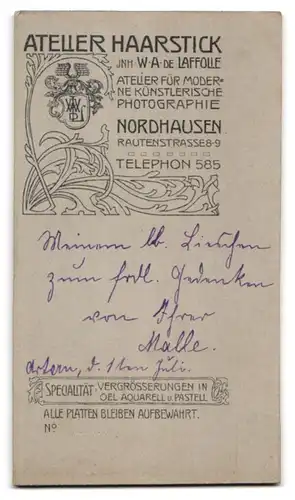 ATELIER HAARSTICK
JNH W·A·DE LAFFOLLE
ATELIER FÜR MODER=
NE KÜNSTLERISCHE
PHOTOGRAPHIE
NORDHAUSEN
RAUTENSTRASSE 8-9
TELEPHON 585
Meinem lb. Lieschen
zum frdl. Gedenken
von Ihrer
Malle.
Artern, d. 1ten Juli.
SPECIALITÄT: VERGRÖSSERUNGEN IN
OEL AQUARELL U. PASTELL
ALLE PLATTEN BLEIBEN AUFBEWAHRT.
No